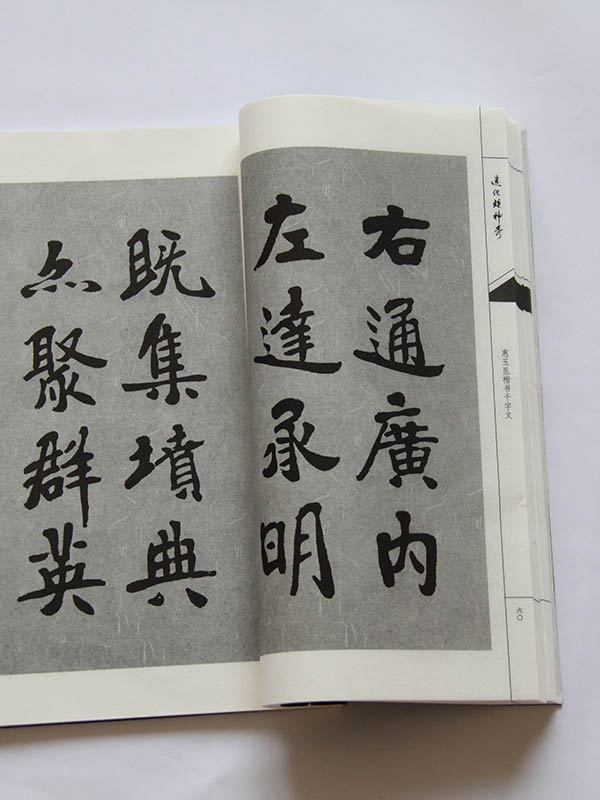 右通廣内
左達承明
既集墳典
亦聚群英
造化钟神秀
惠玉昆楷书千字文
六〇